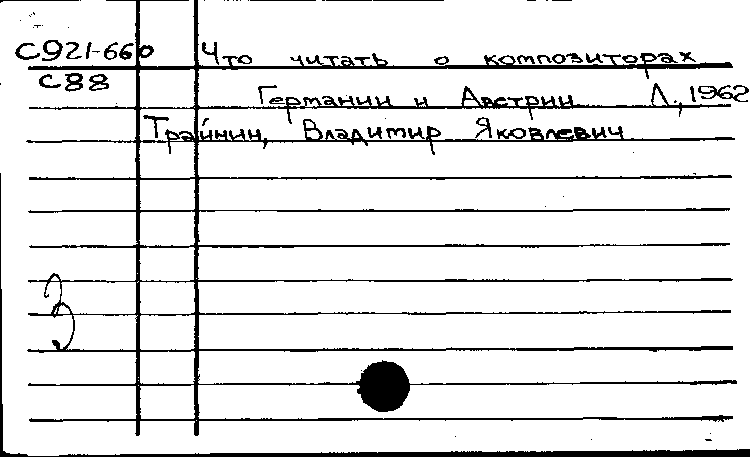 С921-660 Что читать о композиторах
С88 Германии и Австрии Л., 1962
Трайнин, Владимир Яковлевич
З